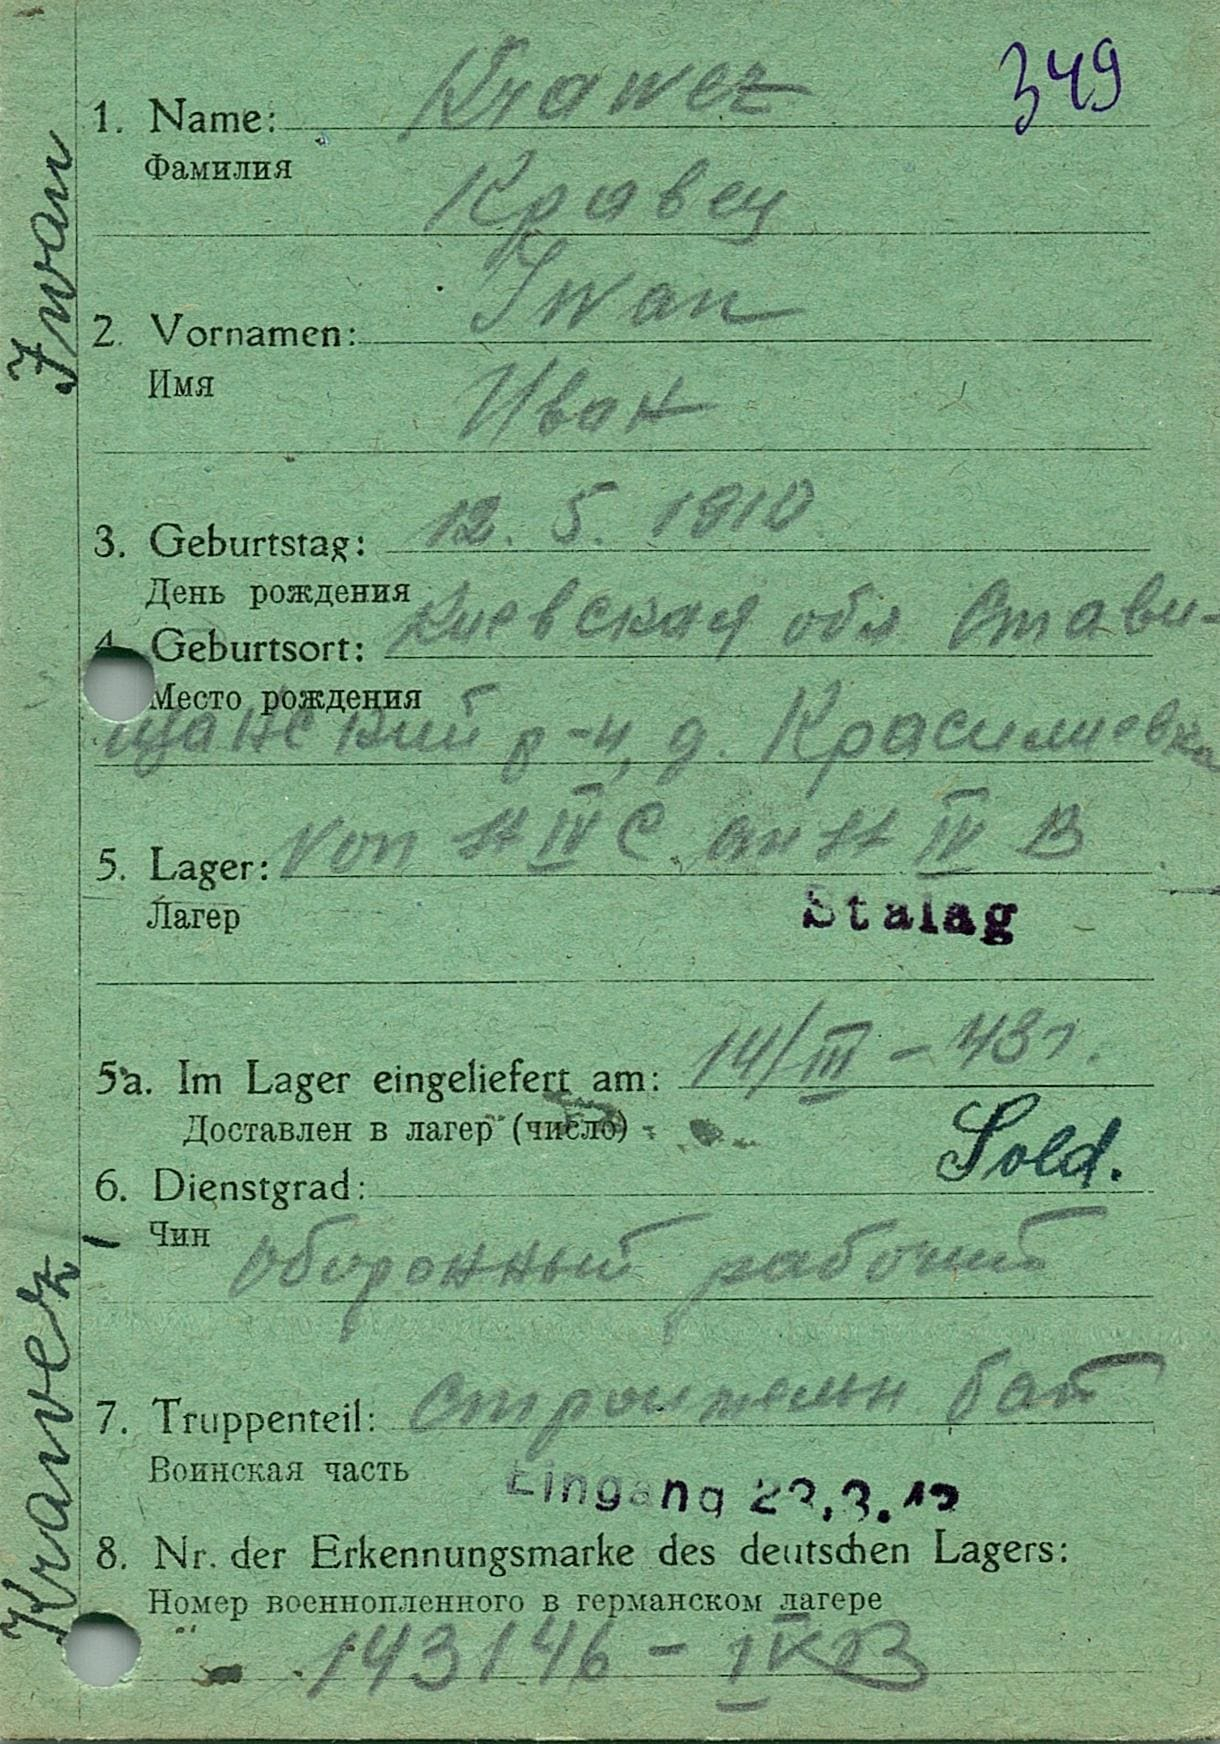 Krawez
349
1. Name:
Фамилия
Кравец
Iwan
2. Vornamen:
Имя
Иван
3. Geburtstag: 12. 5. 1910
День рождения
4. Geburtsort: Киевская обл Стави-
Место рождения
щанский р-н, д. Красилиевка
5. Lager: Von St IV C an St IV B
Лагер
Stalag
5a. Im Lager eingeliefert am: 14/III - 43 г.
Доставлен в лагер (число)
Sold.
6. Dienstgrad:
Чин
оборонный рабочий
7. Truppenteil: Строительн бат
Воинская часть
Eingang
8. Nr. der Erkennungsmarke des deutschen Lagers:
Номер военнопленного в германском лагере
143146 - IV B
Krawez, Iwan